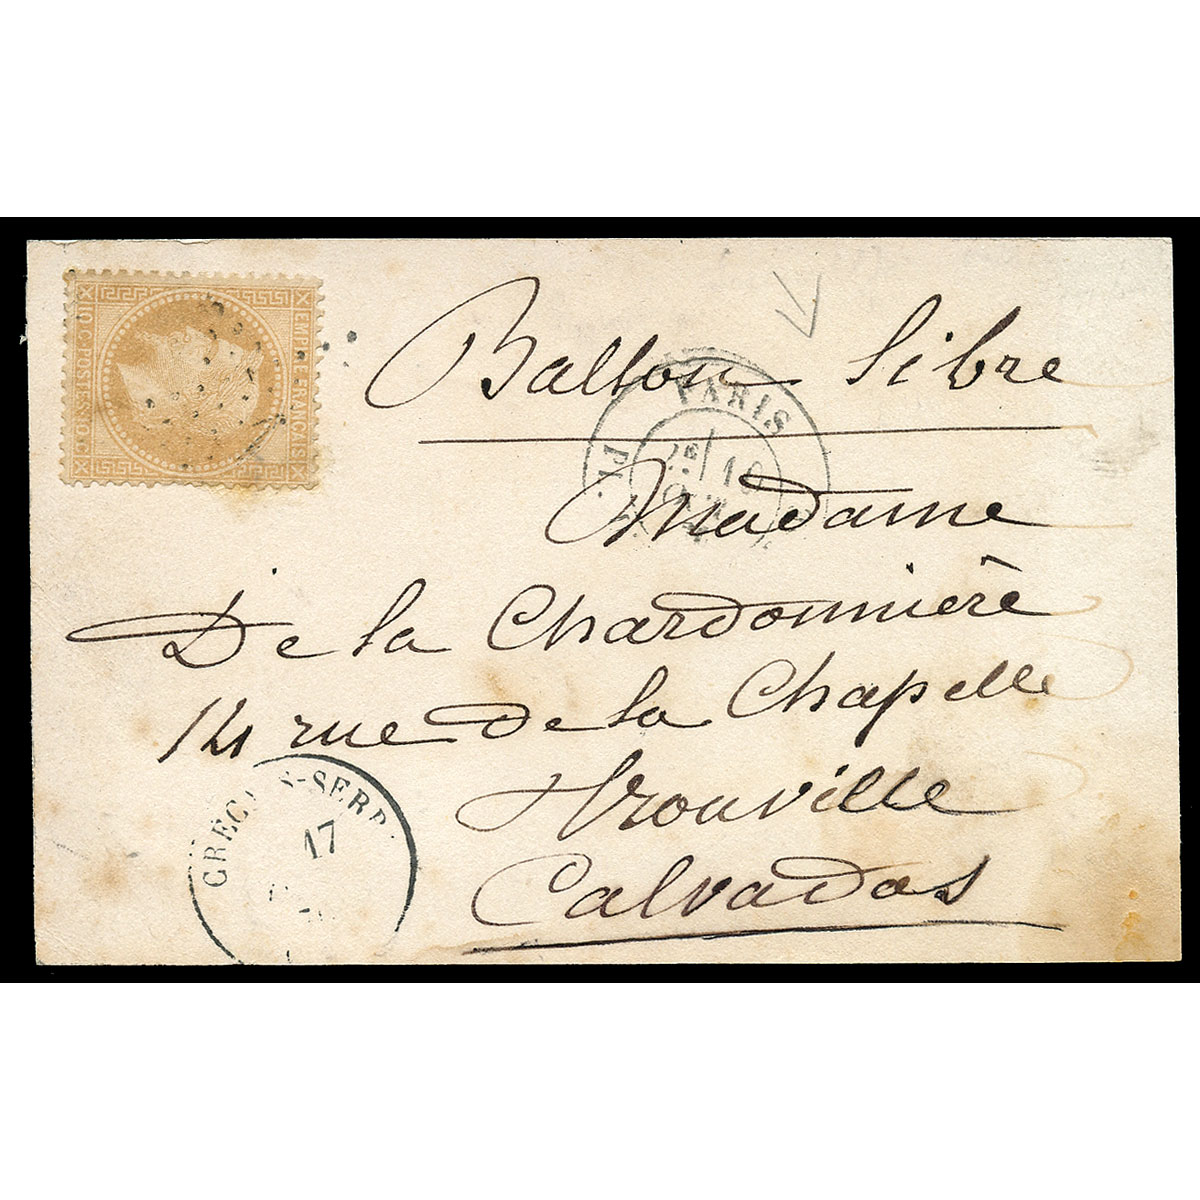 Ballon libre
Madame
De la Chardonnière
14 rue de la Chapelle
Trouville
Calvados
EMPIRE FRANÇAIS
10 C POSTES 10 C
PARIS
2E 10
CRÉCY-SERRE
17